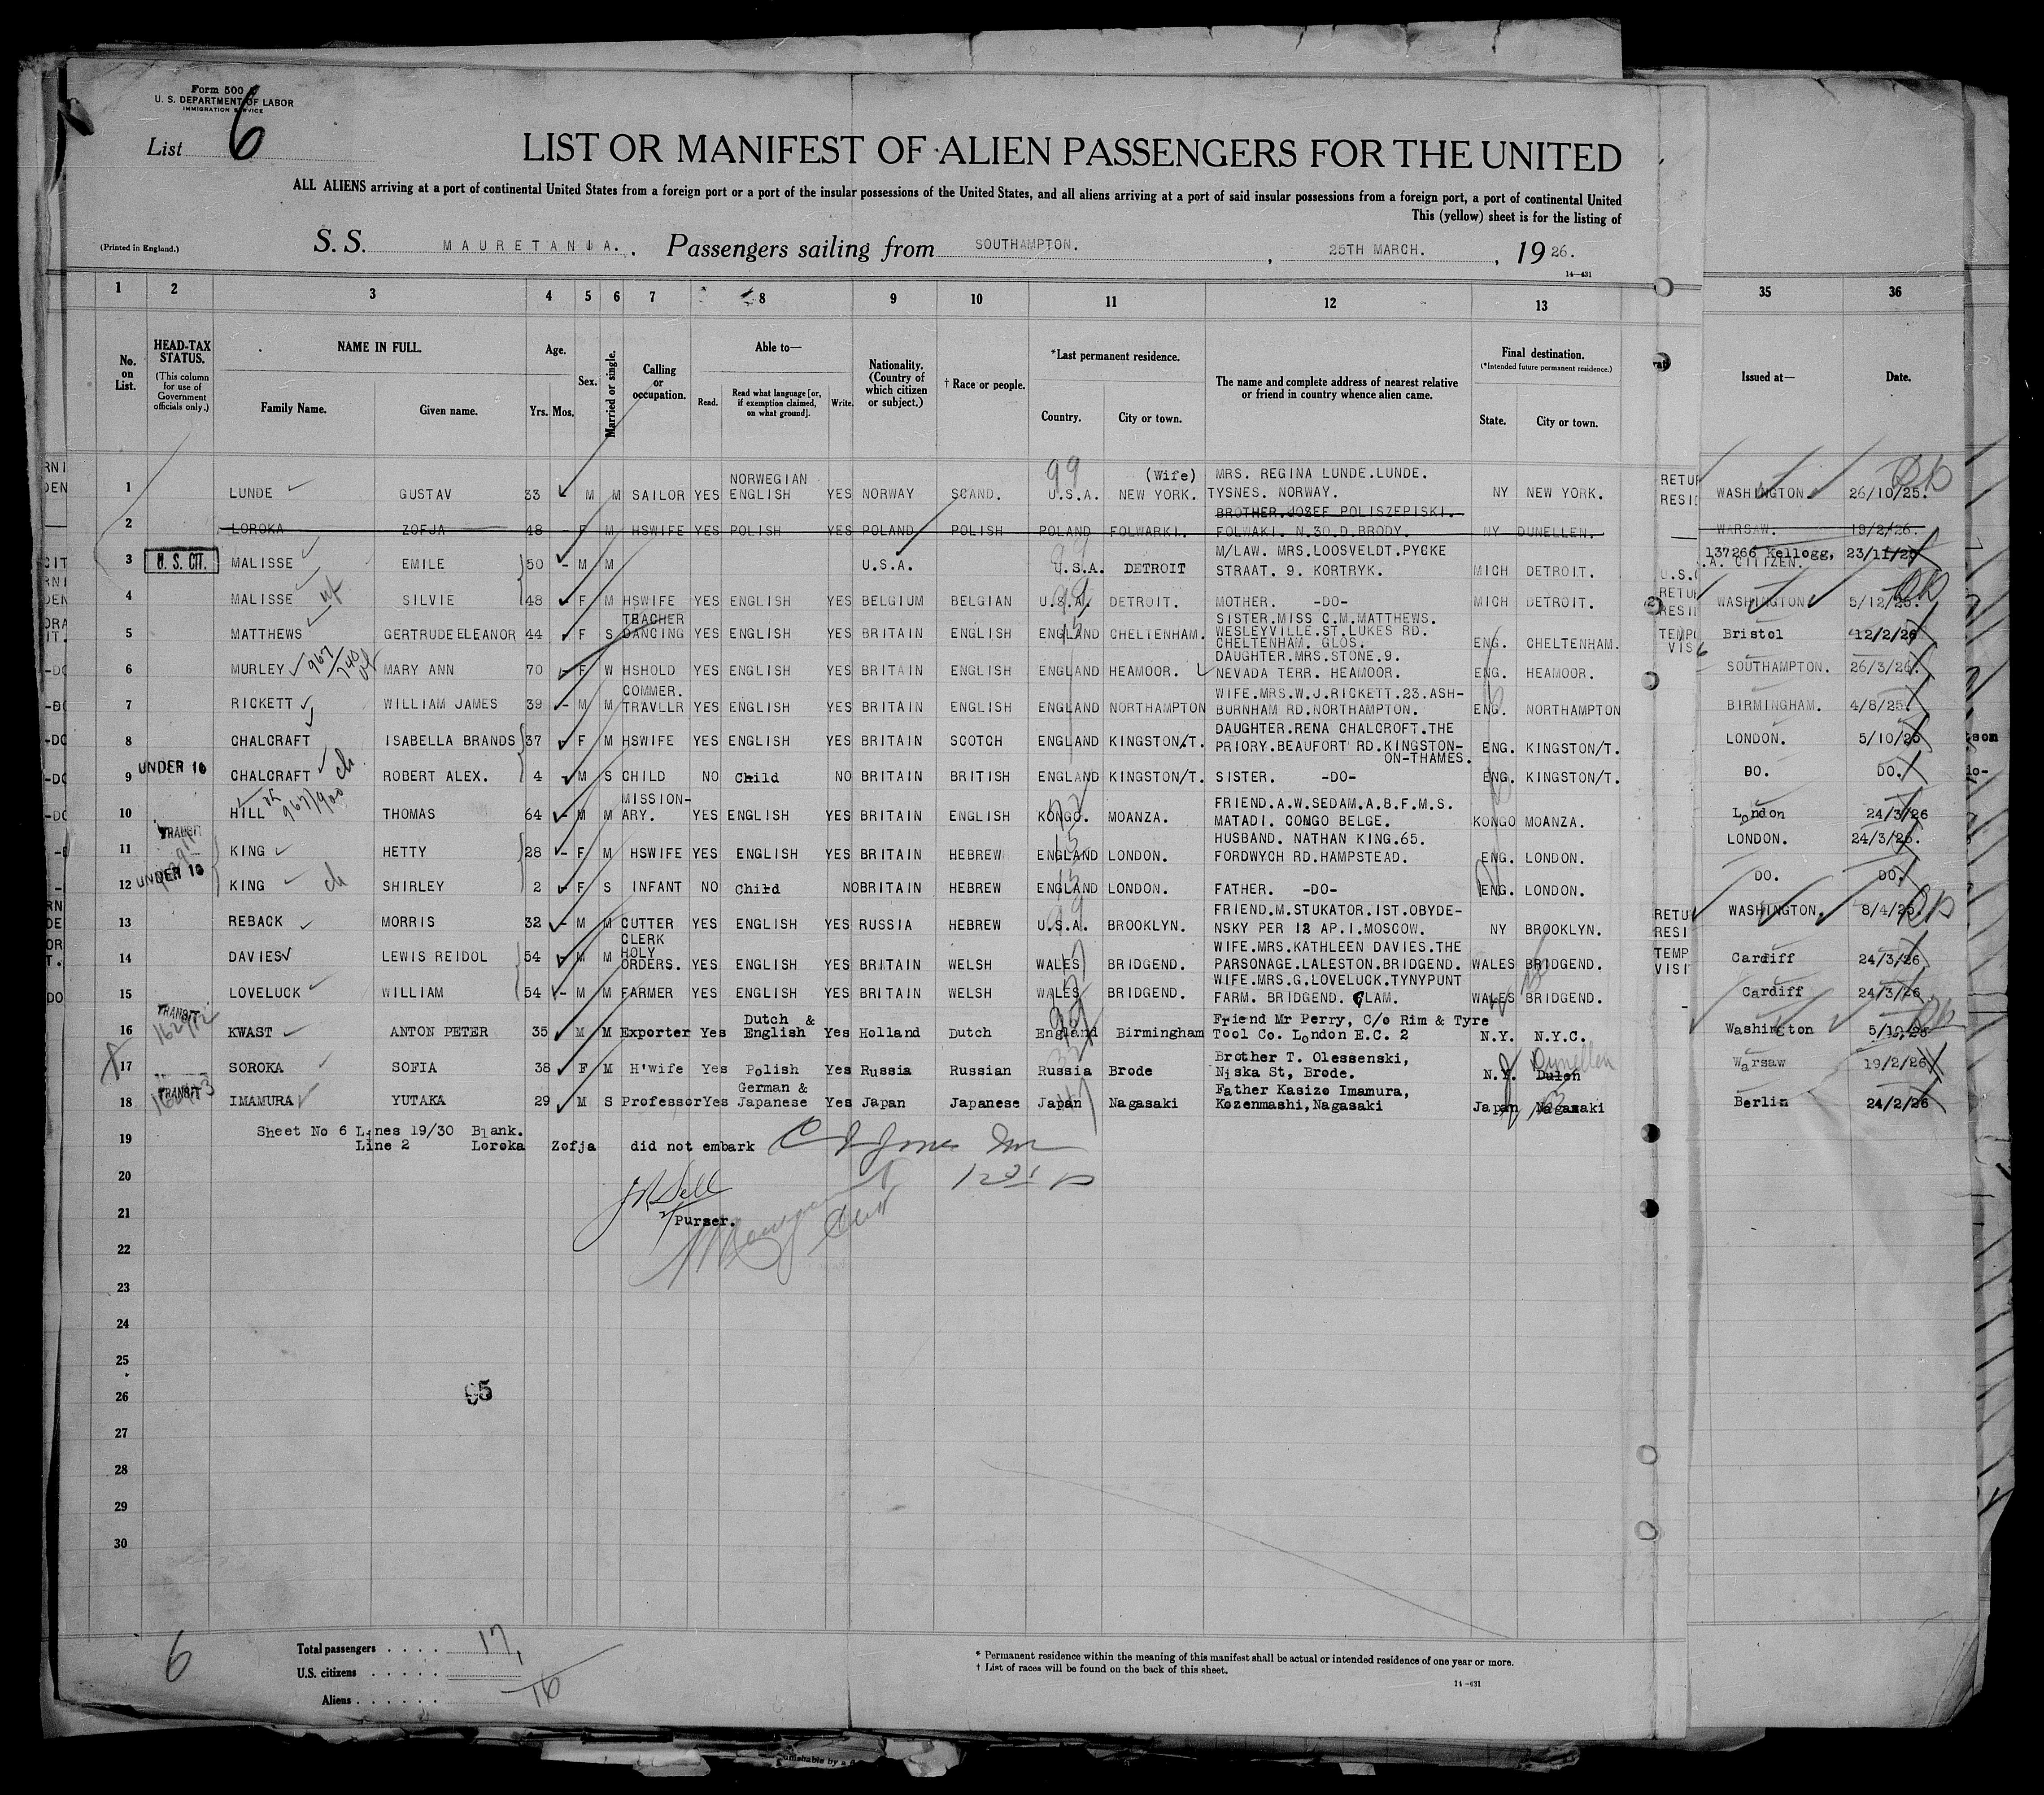 Form 500
U. S. DEPARTMENT OF LABOR
IMMIGRATION SERVICE
List 6
LIST OR MANIFEST OF ALIEN PASSENGERS FOR THE UNITED
ALL ALIENS arriving at a port of continental United States from a foreign port or a port of the insular possessions of the United States, and all aliens arriving at a port of said insular possessions from a foreign port, a port of continental United
This (yellow) sheet is for the listing of
(Printed in England.)
S. S. MAURETANIA. Passengers sailing from SOUTHAMPTON. , 25TH MARCH. , 1926.
14—431
1 2 3 4 5 6 7 8 9 10 11 12 13 35 36
No. on List.
HEAD-TAX STATUS.
(This column for use of Government officials only.)
NAME IN FULL.
Family Name. Given name.
Age.
Yrs. Mos.
Sex.
Married or single.
Calling or occupation.
Able to—
Read. Read what language [or, if exemption claimed, on what ground]. Write.
Nationality. (Country of which citizen or subject.)
† Race or people.
*Last permanent residence.
Country. City or town.
The name and complete address of nearest relative or friend in country whence alien came.
Final destination.
(*Intended future permanent residence.)
State. City or town.
Issued at— Date.
1 LUNDE GUSTAV 33 M M SAILOR YES NORWEGIAN ENGLISH YES NORWAY SCAND. 99 U.S.A. NEW YORK. (Wife) MRS. REGINA LUNDE.LUNDE. TYSNES. NORWAY. NY NEW YORK. WASHINGTON. 26/10/25.
2 LOROKA ZOFJA 48 F M HSWIFE YES POLISH YES POLAND POLISH POLAND FOLWARKI. BROTHER.JOZEF POLISZEPISKI. FOLWAKI. N.30.D.BRODY. NY DUNELLEN. WARSAW. 19/2/26.
3 U. S. CIT. MALISSE EMILE 50 M M U.S.A. U.S.A. DETROIT M/LAW. MRS.LOOSVELDT.PYCKE STRAAT. 9. KORTRYK. MICH DETROIT. 137266 Kellogg, 23/11/25 .A. CITIZEN.
4 MALISSE SILVIE 48 F M HSWIFE YES ENGLISH YES BELGIUM BELGIAN U.S.A. DETROIT. MOTHER. -DO- MICH DETROIT. WASHINGTON 5/12/25.
5 MATTHEWS GERTRUDE ELEANOR 44 F S TEACHER DANCING YES ENGLISH YES BRITAIN ENGLISH ENGLAND CHELTENHAM. SISTER.MISS C.M.MATTHEWS. WESLEYVILLE.ST.LUKES RD. CHELTENHAM. GLOS. ENG. CHELTENHAM. Bristol 12/2/26
6 MURLEY MARY ANN 70 F W HSHOLD YES ENGLISH YES BRITAIN ENGLISH ENGLAND HEAMOOR. DAUGHTER.MRS.STONE.9. NEVADA TERR. HEAMOOR. ENG. HEAMOOR. SOUTHAMPTON. 26/3/26.
7 RICKETT WILLIAM JAMES 39 M M COMMER. TRAVLLR YES ENGLISH YES BRITAIN ENGLISH ENGLAND NORTHAMPTON WIFE.MRS.W.J.RICKETT.23.ASH- BURNHAM RD.NORTHAMPTON. ENG. NORTHAMPTON BIRMINGHAM. 4/8/25.
8 CHALCRAFT ISABELLA BRANDS 37 F M HSWIFE YES ENGLISH YES BRITAIN SCOTCH ENGLAND KINGSTON/T. DAUGHTER.RENA CHALCROFT.THE PRIORY.BEAUFORT RD.KINGSTON- ON-THAMES. ENG. KINGSTON/T. LONDON. 5/10/25
9 UNDER 16 CHALCRAFT ROBERT ALEX. 4 M S CHILD NO Child NO BRITAIN BRITISH ENGLAND KINGSTON/T. SISTER. -DO- ENG. KINGSTON/T. DO. DO.
10 HILL THOMAS 64 M M MISSION- ARY. YES ENGLISH YES BRITAIN ENGLISH KONGO. MOANZA. FRIEND.A.W.SEDAM.A.B.F.M.S. MATADI. CONGO BELGE. KONGO MOANZA. London 24/3/26
11 TRANSIT KING HETTY 28 F M HSWIFE YES ENGLISH YES BRITAIN HEBREW ENGLAND LONDON. HUSBAND. NATHAN KING.65. FORDWYCH RD.HAMPSTEAD. ENG. LONDON. LONDON. 24/3/26.
12 UNDER 16 KING SHIRLEY 2 F S INFANT NO Child NO BRITAIN HEBREW ENGLAND LONDON. FATHER. -DO- ENG. LONDON. DO. DO.
13 REBACK MORRIS 32 M M CUTTER YES ENGLISH YES RUSSIA HEBREW U.S.A. BROOKLYN. FRIEND.M.STUKATOR.IST.OBYDE- NSKY PER 12 AP.I.MOSCOW. NY BROOKLYN. WASHINGTON. 8/4/25.
14 DAVIES LEWIS REIDOL 54 M M CLERK HOLY ORDERS. YES ENGLISH YES BRITAIN WELSH WALES BRIDGEND. WIFE.MRS.KATHLEEN DAVIES.THE PARSONAGE.LALESTON.BRIDGEND. WALES BRIDGEND. Cardiff 24/3/26
15 LOVELUCK WILLIAM 54 M M FARMER YES ENGLISH YES BRITAIN WELSH WALES BRIDGEND. WIFE.MRS.G.LOVELUCK.TYNYPUNT FARM. BRIDGEND. GLAM. WALES BRIDGEND. Cardiff 24/3/26
16 TRANSIT KWAST ANTON PETER 35 M M Exporter Yes Dutch & English Yes Holland Dutch England Birmingham Friend Mr Perry, C/o Rim & Tyre Tool Co. London E.C. 2 N.Y. N.Y.C. Washington 5/10/26
17 SOROKA SOFIA 38 F M H'wife Yes Polish Yes Russia Russian Russia Brode Brother T. Olessenski, Niska St, Brode. N.Y. Dulen Dunellen Warsaw 19/2/26
18 TRANSIT IMAMURA YUTAKA 29 M S Professor Yes German & Japanese Yes Japan Japanese Japan Nagasaki Father Kasizo Imamura, Kozenmashi, Nagasaki Japan Nagasaki Berlin 24/2/26
19 Sheet No 6 Lines 19/30 Blank.
Line 2 Loroka Zofja did not embark
20
21 Purser.
22
23
24
25
26 95
27
28
29
30
6
Total passengers . . . . 17
U.S. citizens . . . . . 1
Aliens . . . . . . 16
* Permanent residence within the meaning of this manifest shall be actual or intended residence of one year or more.
† List of races will be found on the back of this sheet.
14—431